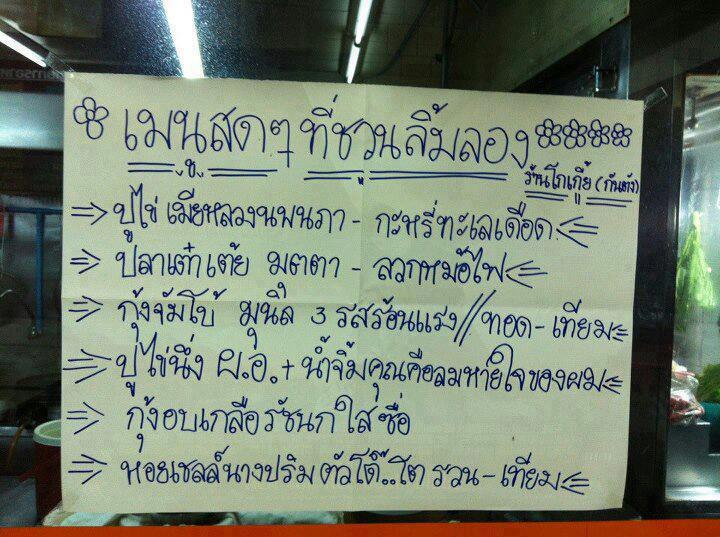 เมนูสดๆ ที่ชวนลิ้มลอง
ร้านโกเกี๊ย (กันตัง)
⇒ ปูไข่ เมียหลวงนพนภา - กะหรี่ทะเลเดือด ⇐
⇒ ปลาเต๋าเต้ย มุตตา - ลวกหม้อไฟ ⇐
⇒ กุ้งจัมโบ้ มุนิล 3 รสร้อนแรง // ทอด - เทียม ⇐
⇒ ปูไข่นึ่ง ผ.อ. + น้ำจิ้มคุณคือลมหายใจของผม ⇐
⇒ กุ้งอบเกลือรัชนกใสซื่อ
⇒ หอยเชลล์นางปริม ตัวโต๊..โต รวน - เทียม ⇐